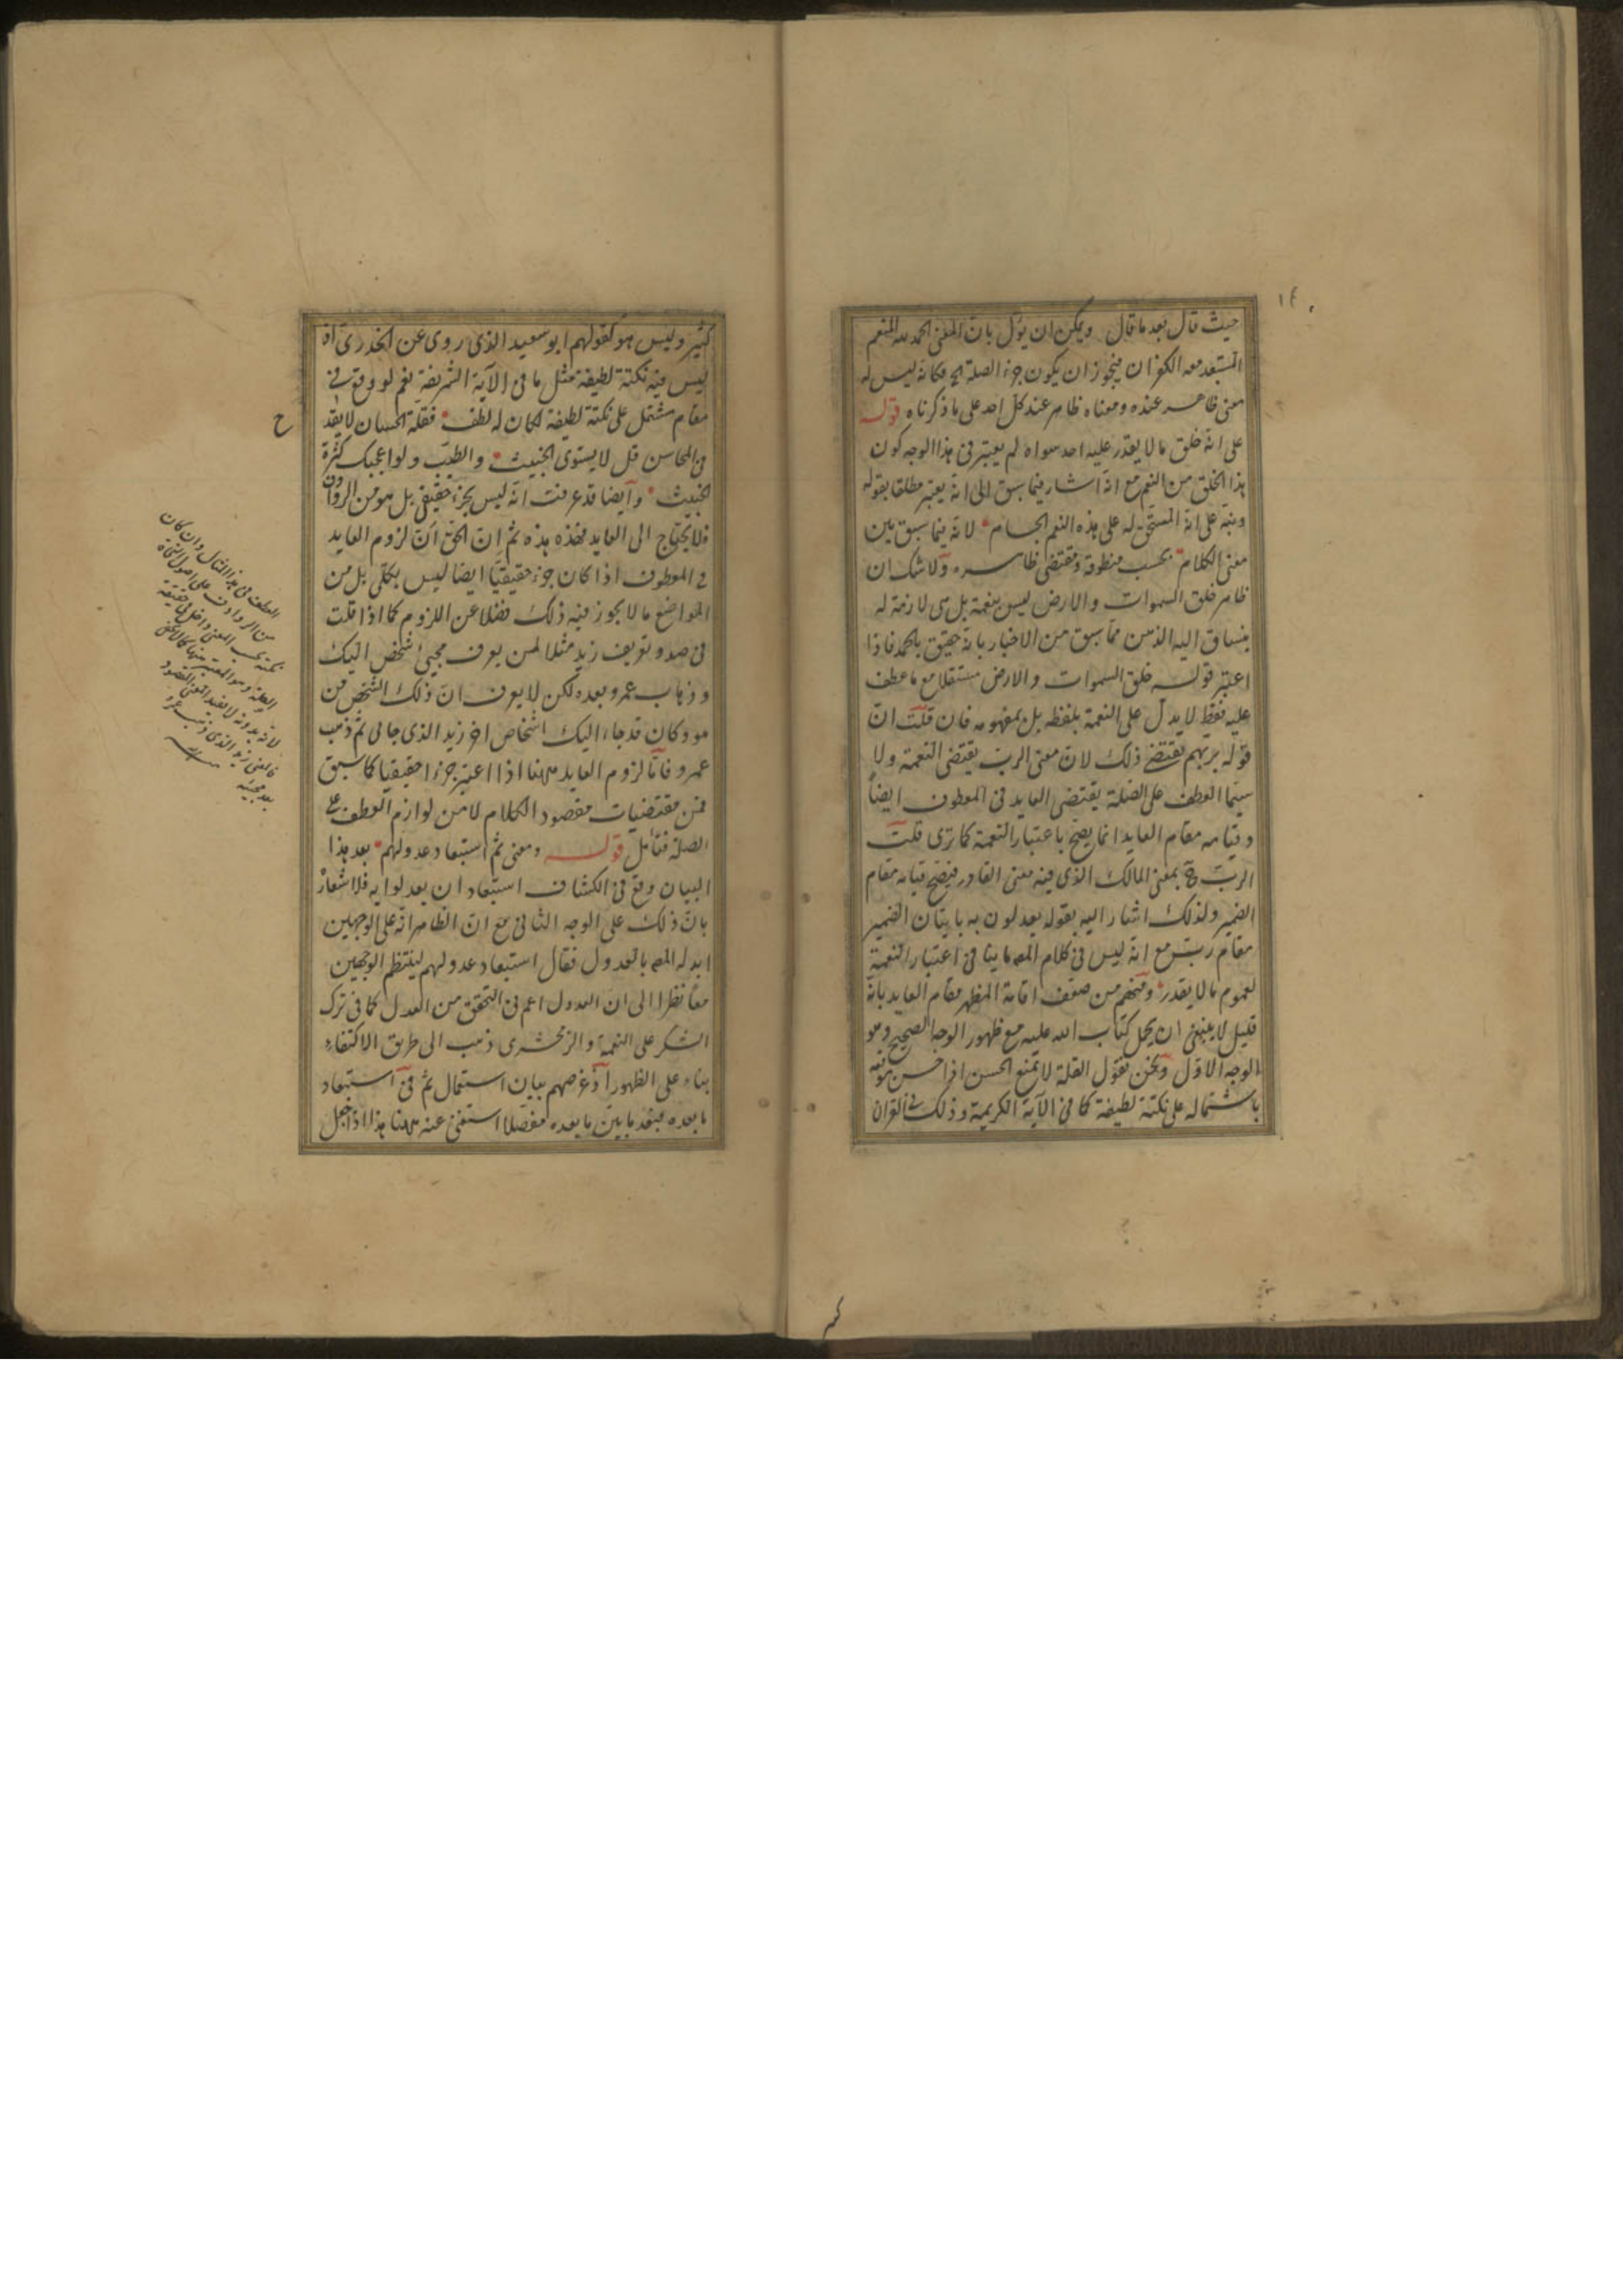 ١٤
حيث قال بعد ما قال ويمكن ان يؤل بان المعنى الحمد لله المنعم
المستبعد معه الكفران فيجوز ان يكون جزء الصلة الخ فكانه ليس له
معنى ظاهر عنده ومعناه ظاهر عند كل احد على ما ذكرناه قوله
على انه خلق ما لا يقدر عليه احد سواه لم يعتبر في هذا الوجه كون
هذا الخلق من النعم مع انه اشار فيما سبق الى انه يعتبر مطلقا بقوله
ونبه على انه المستحق له على هذه النعم الجسام لانه فيما سبق بين
معنى الكلام بحسب منطوقه ومقتضى ظاهره ولا شك ان
ظاهر خلق السموات والارض ليس بنعمة بل هى لازمة له
ينساق اليه الذهن مما سبق من الاخبار بانه حقيق بالحمد فاذا
اعتبر قوله خلق السموات والارض مستقلا مع ما عطف
عليه فقط لا يدل على النعمة بلفظه بل بمفهومه فان قلت ان
قوله بربهم يقتضى ذلك لان معنى الرب يقتضى النعمة ولا
سيما العطف على الصلة يقتضى العايد في المعطوف ايضاً
وقيامه مقام العايد انما يصح باعتبار النعمة كما ترى قلت
الرب ح بمعنى المالك الذى فيه معنى القادر فيصح قيامه مقام
الضمير ولذلك اشار اليه بقوله يعدلون به باتيان الضمير
مقام ربهم مع انه ليس في كلام المص ما ينافى اعتبار النعمة
لعموم ما لا يقدر ومنهم من ضعف اقامة المظهر مقام العايد بانه
قليل لا ينبغى ان يحمل كتاب الله عليه مع ظهور الوجه الصحيح وهو
الوجه الاول ونحن نقول القلة لا تمنع الحسن اذا حسن موقعه
باشتماله على نكتة لطيفة كما في الآية الكريمة وذلك في القران
كثير وليس هو كقولهم ابو سعيد الذى روى عن الخدرى اذ
ليس فيه نكتة لطيفة مثل ما في الآية الشريفة نعم لو وقع في
مقام مشتمل على نكتة لطيفة لكان له لطف فقلة الحسان لا يقد
ح
في المحاسن قل لا يستوى الخبيث والطيب ولو اعجبك كثرة
الخبيث وايضا قد عرفت انه ليس بجزء حقيقى بل هو من الروادف
فلا يحتاج الى العايد فخذه هذه ثم ان الحق ان لزوم العايد
في المعطوف اذا كان جزء حقيقيا ايضا ليس بكلى بل من
المواضع ما لا يجوز فيه ذلك فضلا عن اللزوم كما اذا قلت
في صدد تعريف زيد مثلا لمن يعرف مجيئ شخص اليك
وذهاب عمرو بعده لكن لا يعرف ان ذلك الشخص من
هو وكان قد جاء اليك اشخاص اخر زيد الذى جانى ثم ذهب
عمرو فاما لزوم العايد ههنا اذا اعتبر جزءا حقيقيا كما سبق
فمن مقتضيات مقصود الكلام لا من لوازم العطف على
الصلة فتامل قوله ومعنى ثم استبعاد عدولهم بعد هذا
البيان وقع في الكشاف استبعاد ان يعدلوا به فلاشعاره
بان ذلك على الوجه الثانى مع ان الظاهر انه على الوجهين
ابدله المص بالعدول فقال استبعاد عدولهم لينتظم الوجهين
معا نظرا الى ان العدول اعم في التحقق من العدل كما في ترك
الشكر على النعمة والزمخشرى ذهب الى طريق الاكتفاء
بناء على الظهور اذ غرضهم بيان استعمال ثم في استبعاد
ما بعده فبعد ما بين ما بعده مفصلا استغنى عنه ههنا هذا اذا جعل
العطف في هذا المثال وان كان
من الروادف على اصول النحاة
لكنه بحسب المعنى داخل في حقيقة
الصلة وهو المعتبر
لانه بدونه لا يفيد المعنى المقصود
فالمعنى زيد الذى ذهب عمرو
بعد مجيئه